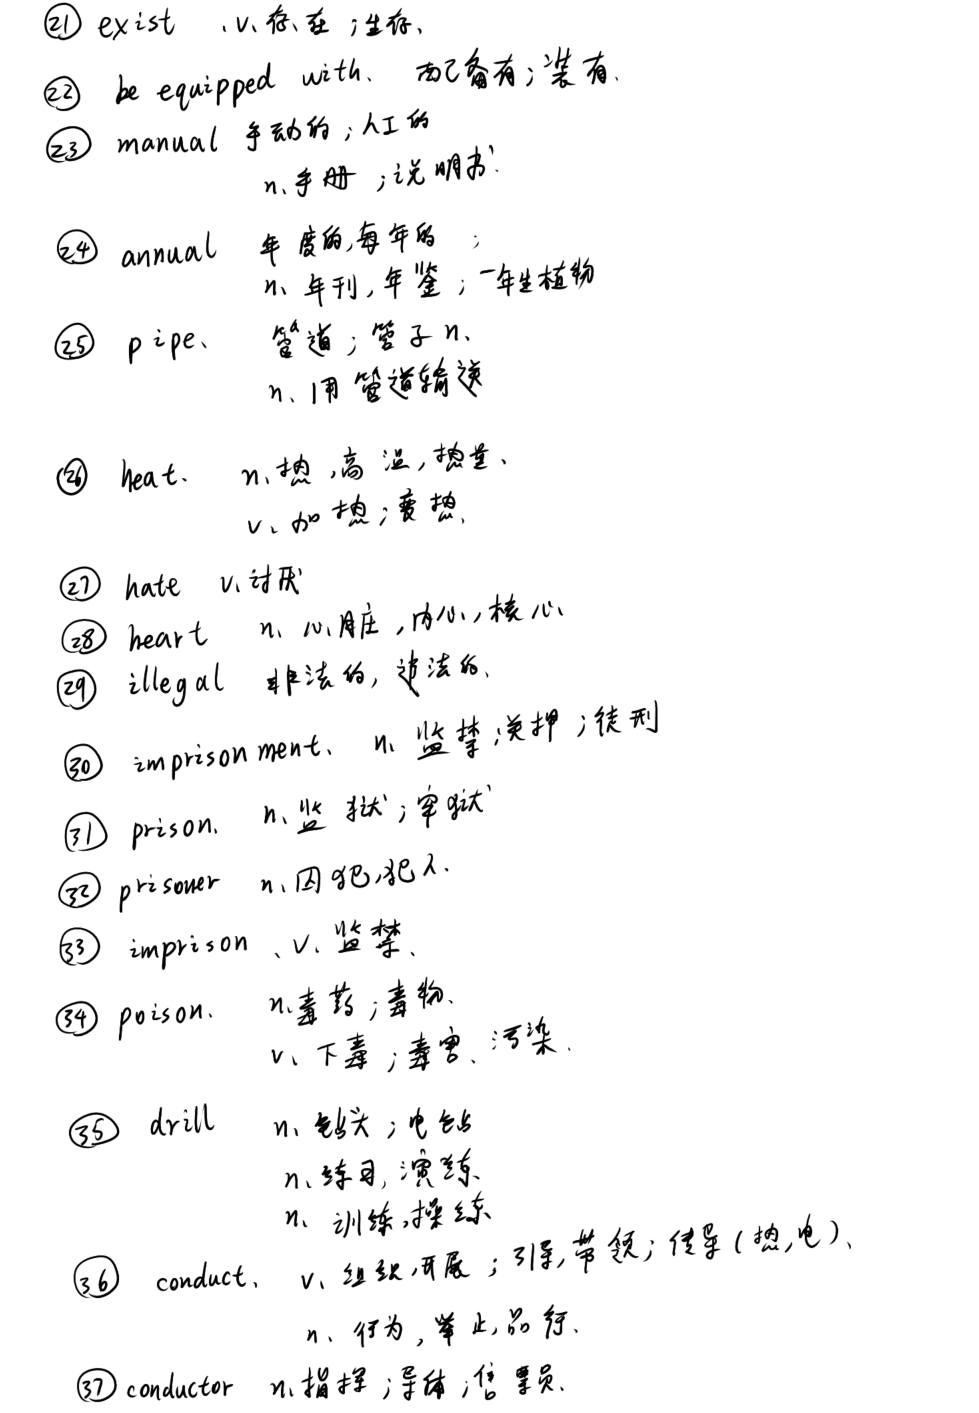 ㉑ exist 、v、存在；生存、
㉒ be equipped with、 配备有；装有、
㉓ manual 手动的；人工的
n、手册；说明书、
㉔ annual 年度的,每年的；
n、年刊,年鉴；一年生植物
㉕ pipe、 管道；管子 n、
n、用管道输送
㉖ heat、 n、热,高温,热量、
v、加热；变热、
㉗ hate v、讨厌
㉘ heart n、心脏,内心,核心、
㉙ illegal 非法的,违法的、
㉚ imprisonment、 n、监禁；关押；徒刑
㉛ prison、 n、监狱；牢狱
㉜ prisoner n、囚犯,犯人、
㉝ imprison 、v、监禁、
㉞ poison、 n、毒药；毒物、
v、下毒；毒害、污染、
㉟ drill n、钻头；电钻
n、练习,演练、
n、训练,操练
㊱ conduct、 v、组织,开展；引导,带领；传导(热,电)、
n、行为,举止,品行、
㊲ conductor n、指挥；导体；售票员、